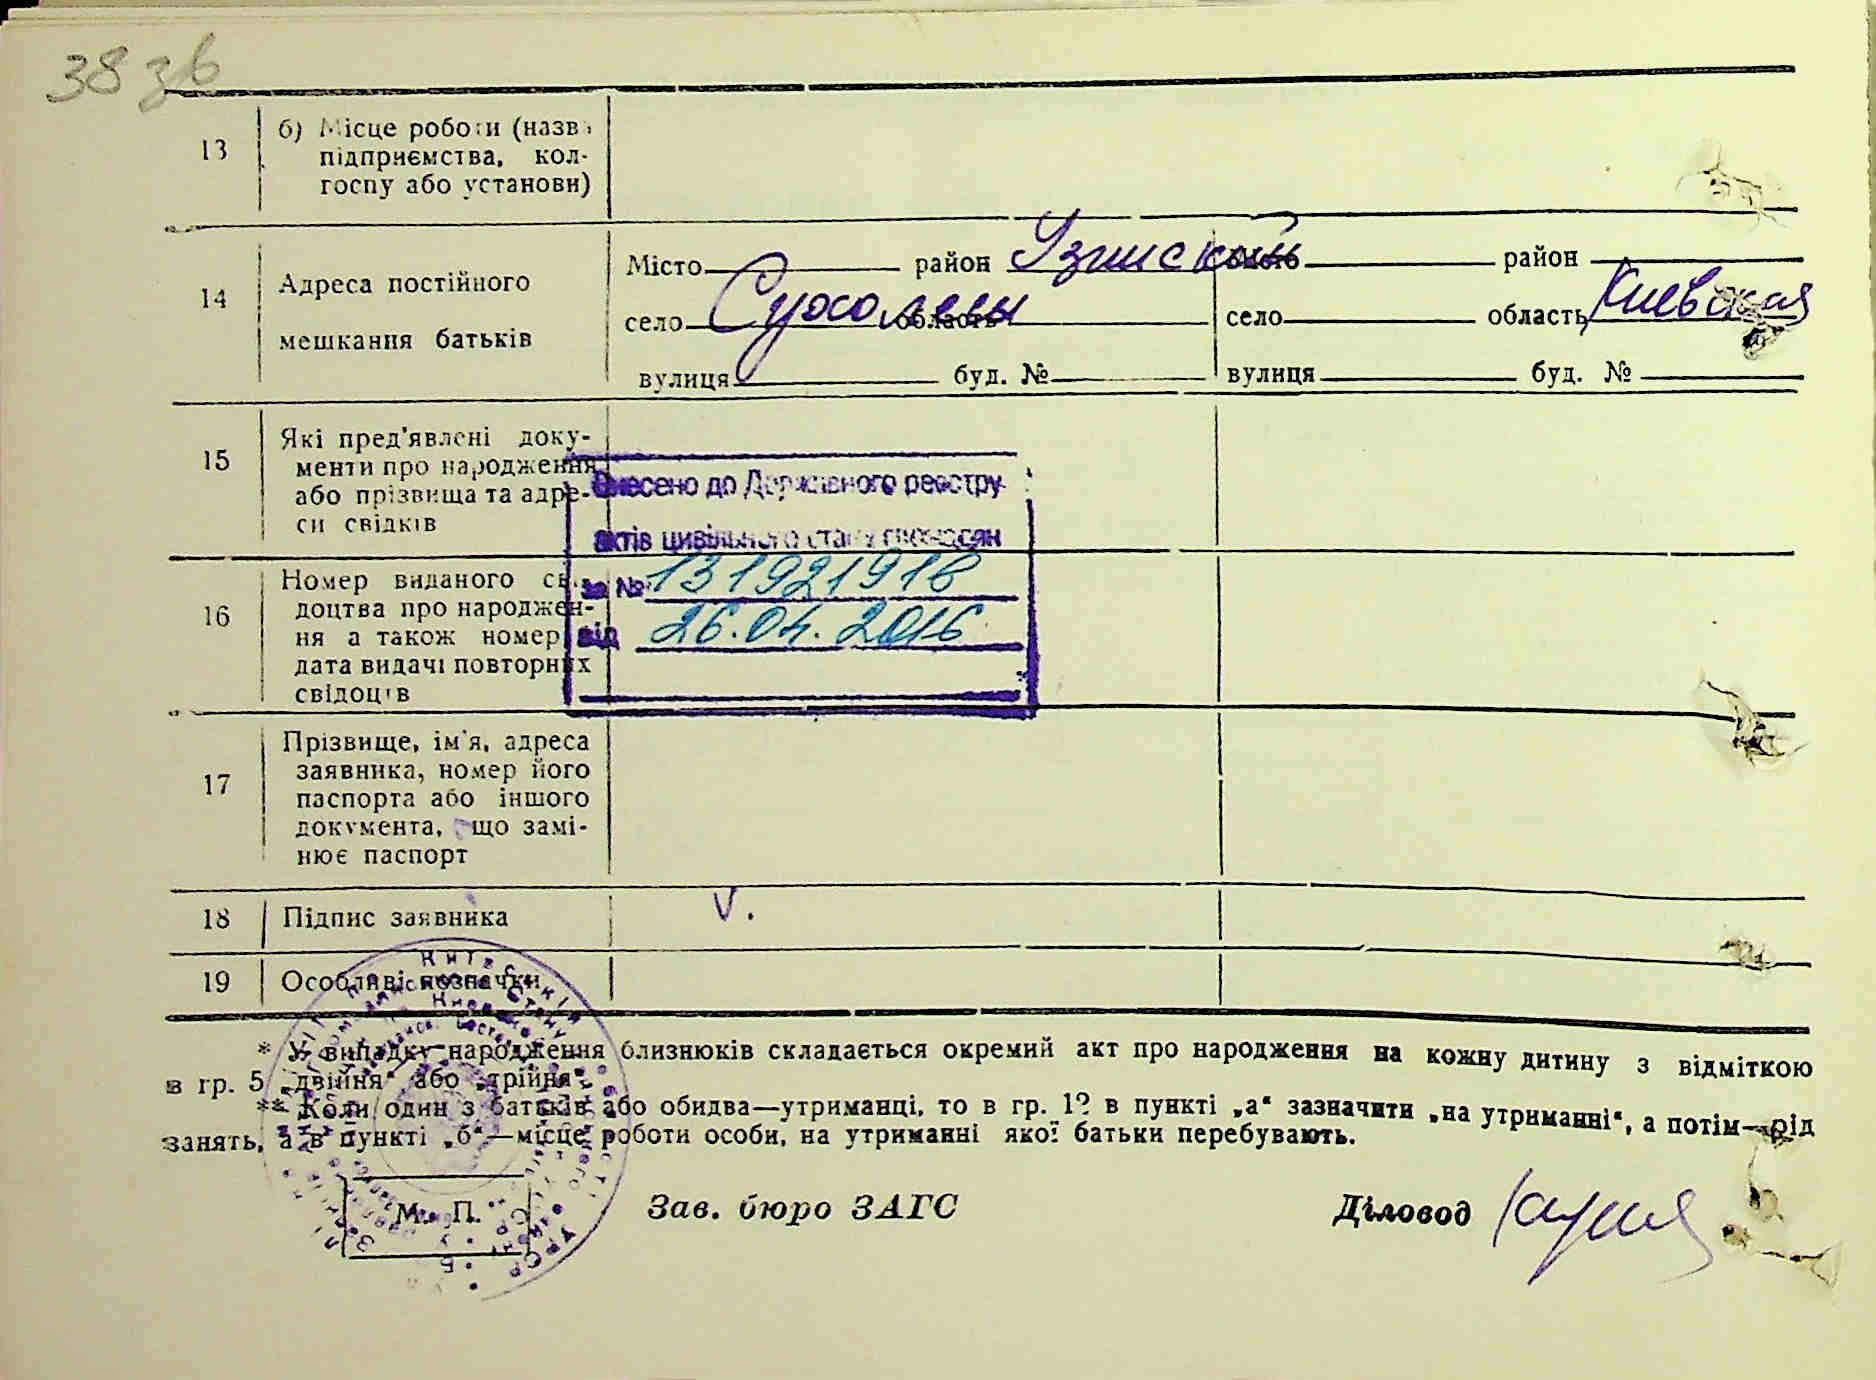 38 зв
13 б) Місце роботи (назва
підприємства, кол-
госпу або установи)
14 Адреса постійного
мешкання батьків
Місто район Узинский Місто район
село Сухолесы область село область Киевская
вулиця буд. № вулиця буд. №
15 Які пред'явлені доку-
менти про народження
або прізвища та адре-
си свідків
Внесено до Державного реєстру
актів цивільного стану громадян
за № 131921918
від 26.04.2016
16 Номер виданого сві-
доцтва про народжен-
ня а також номер і
дата видачі повторних
свідоцтв
17 Прізвище, ім'я, адреса
заявника, номер його
паспорта або іншого
документа, що замі-
нює паспорт
18 Підпис заявника V.
19 Особливі позначки
* У випадку народження близнюків складається окремий акт про народження на кожну дитину з відміткою
в гр. 5 „двійня“ або „трійня“.
** Коли один з батьків або обидва—утриманці, то в гр. 12 в пункті „а“ зазначити „на утриманні“, а потім—рід
занять, а в пункті „б“—місце роботи особи, на утриманні якої батьки перебувають.
М. П. Зав. бюро ЗАГС Діловод